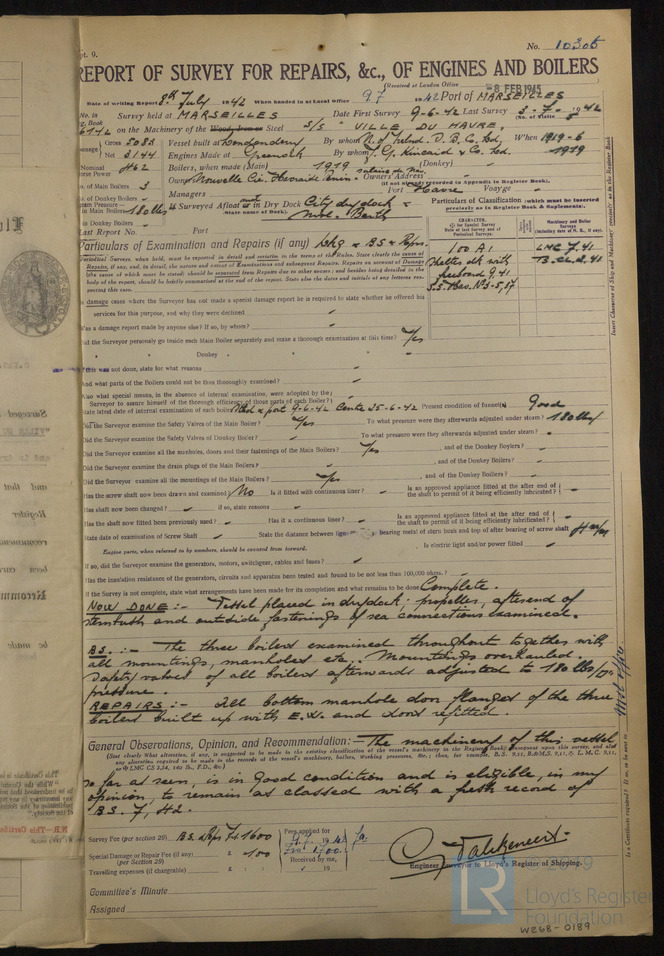 pt. 9.
No. 10305
REPORT OF SURVEY FOR REPAIRS, &c., OF ENGINES AND BOILERS
(Received at London Office
-8 FEB 1945
Date of writing Report 8th July 1942 When handed in at Local Office 9.7 1942 Port of MARSEILLES
No. in Survey held at MARSEILLES Date First Survey 9-6-42 Last Survey 3-7-1942
Book (No. of Visits 5
on the Machinery of the Wood, Iron or Steel S/S "VILLE DU HAVRE"
Gross 5083 Vessel built at Londonderry By whom N. of Ireland S.B. Co. Ltd. When 1919-6
Net 3144 Engines Made at Greenock By whom J. G. Kincaid & Co. Ltd. 1919
Nominal Horse Power 462 Boilers, when made (Main) 1919 (Donkey)
No. of Main Boilers 3 Owners Nouvelle Cie. Havraise Owners' Address
(if not already recorded in Appendix to Register Book).
No. of Donkey Boilers Managers Port Havre Voyage
Steam Pressure in Main Boilers 180 lbs If Surveyed Afloat or in Dry Dock City dry dock &
(State name of Dock). Berth
in Donkey Boilers
Last Report No. Port
Particulars of Classification (which must be inserted precisely as in Register Book & Supplements).
100 A1 LMC 7.41
Shelter dk with B.S. 41
freeboard 9,41
Particulars of Examination and Repairs (if any) Dkg & BS & Reprs.
Periodical Surveys, when held, must be reported in detail and seriatim in the terms of the Rules. State clearly the cause of
Repairs, if any, and, in detail, the nature and extent of Examinations and subsequent Repairs. Repairs on account of Damage
(the cause of which must be stated) should be separated from Repairs due to other causes; and besides being detailed in the
body of the report, should be briefly summarised at the end of the report. State also the dates and initials of any letters respecting this case.
In damage cases where the Surveyor has not made a special damage report he is required to state whether he offered his
services for this purpose, and why they were declined
Was a damage report made by anyone else? If so, by whom?
Did the Surveyor personally go inside each Main Boiler separately and make a thorough examination at this time? Yes
" " Donkey " " " "
If this was not done, state for what reasons
And what parts of the Boilers could not be thus thoroughly examined?
Also what special means, in the absence of internal examination, were adopted by the
Surveyor to assure himself of the thorough efficiency of those parts of each Boiler?
State latest date of internal examination of each boiler Stbd & port 9-6-42 Centre 25-6-42 Present condition of funnel(s) Good
Did the Surveyor examine the Safety Valves of the Main Boiler? Yes To what pressure were they afterwards adjusted under steam? 180 lbs
Did the Surveyor examine the Safety Valves of Donkey Boiler? To what pressure were they afterwards adjusted under steam?
Did the Surveyor examine all the manholes, doors and their fastenings of the Main Boilers? Yes, and of the Donkey Boilers?
Did the Surveyor examine the drain plugs of the Main Boilers?, and of the Donkey Boilers?
Did the Surveyor examine all the mountings of the Main Boilers? Yes, and of the Donkey Boilers?
Has the screw shaft now been drawn and examined? No Is it fitted with continuous liner? Is an approved appliance fitted at the after end of the shaft to permit of it being efficiently lubricated?
Has shaft now been changed? If so, state reasons
Has the shaft now fitted been previously used? Has it a continuous liner? Is an approved appliance fitted at the after end of the shaft to permit of it being efficiently lubricated?
State date of examination of Screw Shaft State the distance between lignum vitæ or bearing metal of stern bush and top of after bearing of screw shaft 4 m/m
Engine parts, when referred to by numbers, should be counted from forward. Is electric light and/or power fitted
If so, did the Surveyor examine the generators, motors, switchgear, cables and fuses?
Has the insulation resistance of the generators, circuits and apparatus been tested and found to be not less than 100,000 ohms?
If the Survey is not complete, state what arrangements have been made for its completion and what remains to be done Complete.
NOW DONE :- Vessel placed in dry dock; propeller, after end of
sternbush and outside fastenings of sea connections examined.
B.S. :- The three boilers examined throughout together with
all mountings, manholes etc. Mountings overhauled.
Safety valves of all boilers afterwards adjusted to 180 lbs/□"
pressure.
REPAIRS :- All bottom manhole door flanges of the three
boilers built up with E.W. and doors refitted.
General Observations, Opinion, and Recommendation:- The machinery of this vessel
(State clearly what alteration, if any, is suggested to be made in the existing classification of the vessel's machinery in the Register Book, consequent upon this survey, and also
any alteration required to be made in the records of the vessel's machinery, boilers, working pressures, &c.; thus, for example, B.S. 9,11, B.&M.S. 9,11, & L.M.C. 9,11,
or & LMC CS 3,34, 140 lb., F.D., &c.)
so far as seen, is in good condition and is eligible, in my
opinion, to remain as classed with a fresh record of
BS. 7, 42.
Survey Fee (per section 29) BS & Reprs Frs 1600 Fees applied for 1942
Special Damage or Repair Fee (if any) (per Section 29) 100 Received by me,
Travelling expenses (if chargeable) 19
Engineer Surveyor to Lloyd's Register of Shipping.
Committee's Minute
Assigned
Insert Character of Ship and Machinery precisely as in the Register Book
Is a Certificate required? If so, to be sent to
LR
Lloyd's Register
Foundation
W268-0189